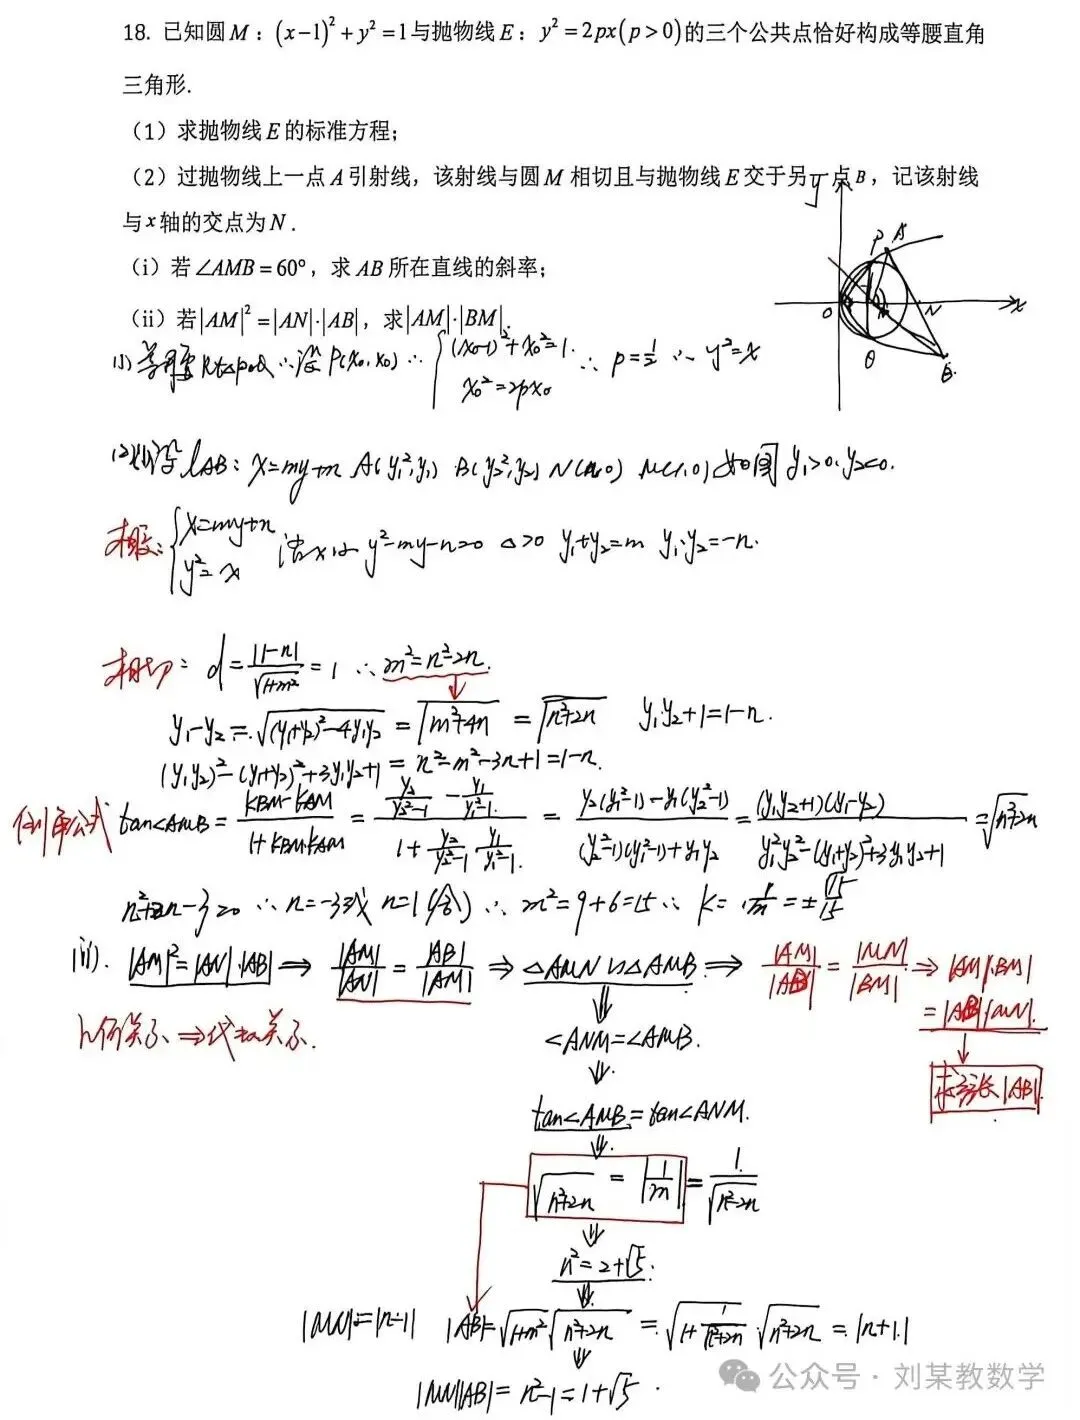 18. 已知圆 M：(x−1)²+y²=1与抛物线 E：y²=2px(p>0)的三个公共点恰好构成等腰直角
三角形.
（1）求抛物线 E 的标准方程；
（2）过抛物线上一点 A 引射线，该射线与圆 M 相切且与抛物线 E 交于另一点 B，记该射线
与 x 轴的交点为 N．
（i）若∠AMB=60°，求 AB 所在直线的斜率；
（ii）若|AM|²=|AN|·|AB|，求|AM|·|BM|.
y P A
O N x
Q B
(1) 等腰Rt△POQ ∴设P(x₀,x₀) ∴ {(x₀-1)²+x₀²=1. x₀²=2px₀ ∴ p=½ ∴ y²=x
(2)(i)设 l_AB: x=my+n A(y₁²,y₁) B(y₂²,y₂) N(n,0) M(1,0) 如图 y₁>0, y₂<0.
{x=my+n y²=x 消x得 y²-my-n=0 △>0 y₁+y₂=m y₁y₂=-n.
相切: d=|1-n|/√(1+m²)=1 ∴ m²=n²-2n.
y₁-y₂=√((y₁+y₂)²-4y₁y₂) = √(m²+4n) = √(n²+2n) y₁y₂+1=1-n.
(y₁y₂)²-(y₁+y₂)²+3y₁y₂+1 = n²-m²-3n+1=1-n.
公式 tan∠AMB = (k_BM-k_AM)/(1+k_BM k_AM) = (y₂/(y₂²-1) - y₁/(y₁²-1))/(1+y₂/(y₂²-1)·y₁/(y₁²-1)) = (y₂(y₁²-1)-y₁(y₂²-1))/((y₂²-1)(y₁²-1)+y₁y₂) = (y₁y₂+1)(y₁-y₂)/(y₁²y₂²-(y₁+y₂)²+3y₁y₂+1) = √(n²+2n)
n²+2n-3=0 ∴ n=-3或 n=1(舍) ∴ m²=9+6=15 ∴ k=1/m=±√15/15
(ii). |AM|²=|AN|·|AB| ⇒ |AM|/|AN| = |AB|/|AM| ⇒ △AMN∽△AMB ⇒ |AM|/|AB| = |MN|/|BM| ⇒ |AM|·|BM|
=|AB|·|MN|.
几何关系⇒代数关系.
∠ANM=∠AMB.
求弦长|AB|.
tan∠AMB=tan∠ANM.
√(n²+2n) = |1/m| = 1/√(n²-2n)
n²=2+√5.
|MN|=|n-1| |AB|=√(1+m²)√(n²+2n) = √(1+1/(n²+2n))·√(n²+2n) = |n+1|
|MN||AB|=n²-1=1+√5.
公众号·刘某教数学